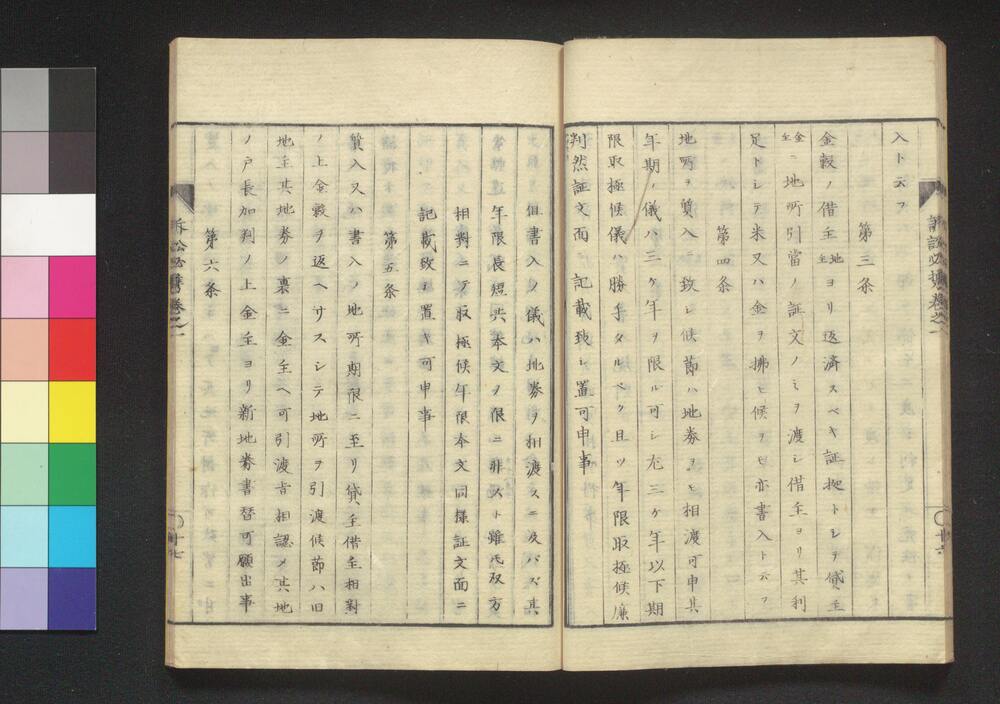 入ト云フ
第三条
金穀ノ借主地主ヨリ返済スベキ証拠トシテ貸主
金主ニ地所引当ノ証文ノミヲ渡シ借主ヨリ其利
足トシテ米又ハ金ヲ拂ヒ候ヲモ亦書入ト云フ
第四条
地所ヲ質入致シ候節ハ地券ヲモ相渡可申其
年期ノ儀ハ三ケ年ヲ限ル可シ尤三ケ年以下期
限取極候儀ハ勝手タルベク且ツ年限取極候廉
判然証文面記載致シ置可申事
但書入ノ儀ハ地券ヲ相渡スニ及バズ其
年限長短共本文ノ限ニ非スト雖氏双方
相対ニテ取極候年限本文同様証文面ニ
記載致シ置キ可申事
第五条
質入又ハ書入ノ地所期限ニ至リ貸主借主相対
ノ上金穀ヲ返ヘサスシテ地所ヲ引渡候節ハ旧
地主其地券ノ裏ニ金主ヘ可引渡旨相認メ其地
ノ戸長加判ノ上金主ヨリ新地券書替可願出事
第六条
訴訟必携巻之一
廿六
訴訟必携巻之一
廿七